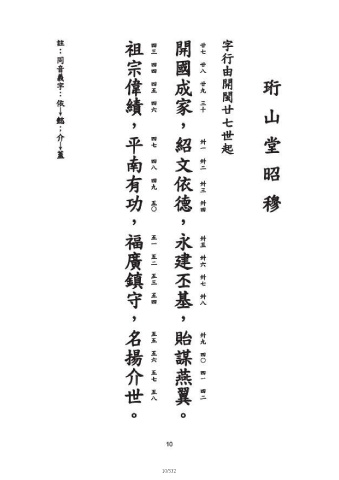 珩山堂昭穆
字行由開閩廿七世起
廿七 廿八 廿九 三十 卅一 卅二 卅三 卅四 卅五 卅六 卅七 卅八 卅九 四〇 四一 四二
開國成家，紹文依德，永建丕基，貽謀燕翼。
四三 四四 四五 四六 四七 四八 四九 五〇 五一 五二 五三 五四 五五 五六 五七 五八
祖宗偉績，平南有功，福廣鎮守，名揚介世。
註：同音義字：依→懿；介→蓋
10
10/532